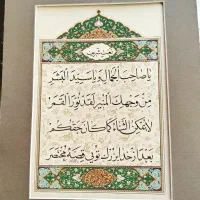 يا صاحب الجمال و يا سيد البشر
من وجهك المنير لقد نور القمر
لا يمكن الثناء كما كان حقه
بعد از خدا بزرگ توئی قصه مختصر